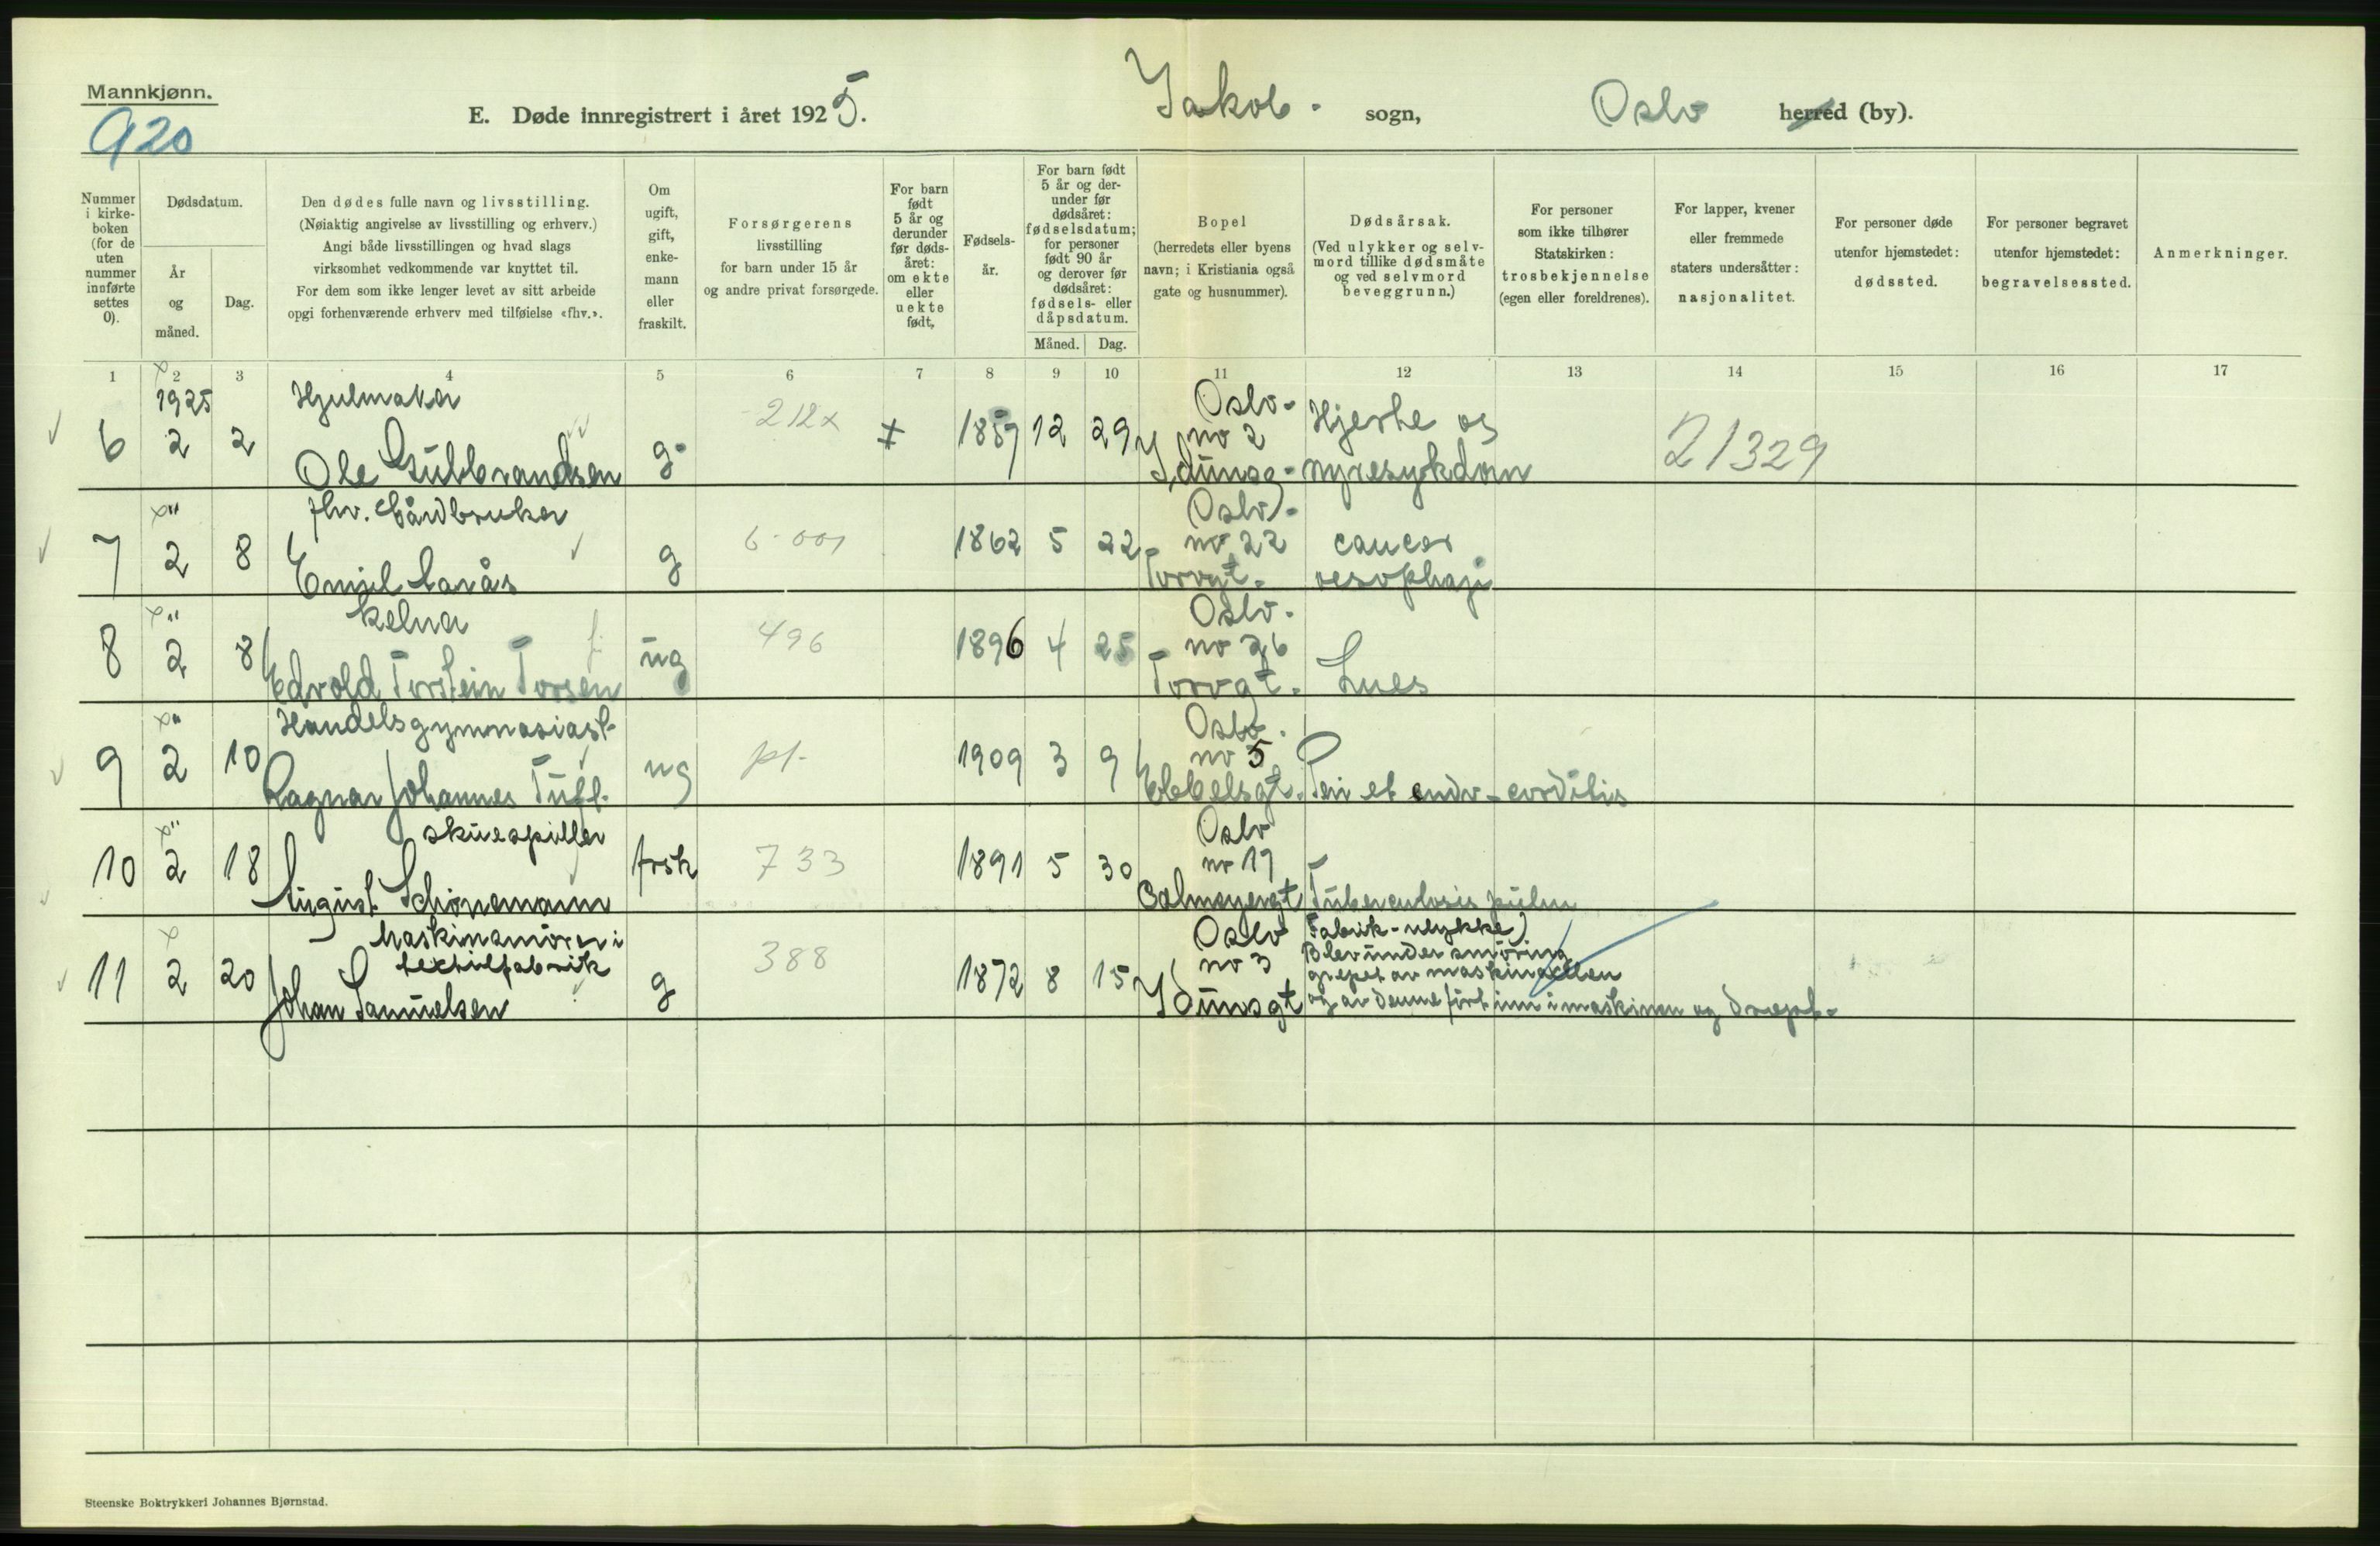 Mannkjønn.
920
E. Døde innregistrert i året 1925.
Jakob. sogn,
Oslo herred (by).
Nummer i kirke-boken (for de uten nummer innførte settes 0).
Dødsdatum.
År og måned.
Dag.
Den dødes fulle navn og livsstilling.
(Nøiaktig angivelse av livsstilling og erhverv.)
Angi både livsstillingen og hvad slags
virksomhet vedkommende var knyttet til.
For dem som ikke lenger levet av sitt arbeide
opgi forhenværende erhverv med tilføielse «fhv.».
Om ugift, gift, enke-mann eller fraskilt.
Forsørgerens
livsstilling
for barn under 15 år
og andre privat forsørgede.
For barn født 5 år og derunder før døds-året: om ekte eller uekte født,
Fødsels-år.
For barn født 5 år og der-under før dødsåret: fødselsdatum; for personer født 90 år og derover før dødsåret: fødsels- eller dåpsdatum.
Måned.
Dag.
Bopel
(herredets eller byens
navn; i Kristiania også
gate og husnummer).
Dødsårsak.
(Ved ulykker og selv-
mord tillike dødsmåte
og ved selvmord
beveggrunn.)
For personer
som ikke tilhører
Statskirken:
trosbekjennelse
(egen eller foreldrenes).
For lapper, kvener
eller fremmede
staters undersåtter:
nasjonalitet.
For personer døde
utenfor hjemstedet:
dødssted.
For personer begravet
utenfor hjemstedet:
begravelsessted.
Anmerkninger.
1 2 3 4 5 6 7 8 9 10 11 12 13 14 15 16 17
1925 Hjulmaker 212x Oslo. Hjerte og
6 2 2 Ole Gulbrandsen g. 1857 12 29 no 2 Idunsg. nyresykdom 21329
" fhv. Gårdbruker 6-001 Oslo. cancer
7 2 8 Emil g 1862 5 22 no 22 Torvgt. oesophagi
" kelner 496 Oslo.
8 2 8 Edvold Torstein Torsen ug 1896 4 25 no 26 Torvgt. Lues
" Handelsgymnasiast pt. Oslo.
9 2 10 Ragnar Johannes ug 1909 3 9 no 5 Ebbelsgt. Peri et endo-corditis
" skuespiller 733 Oslo
10 2 18 August Schønemann frsk 1891 5 30 no 17 Calmeyergt Tuberculosis pulm
Maskinsmører i 388 Oslo Fabrik-ulykke)
textilfabrik no 3 Blev under smøring
11 2 20 Johan Samuelsen g 1872 8 15 Idunsgt grepet av maskinakslen
og av denne ført inn i maskinen og drept.
Steenske Boktrykkeri Johannes Bjørnstad.